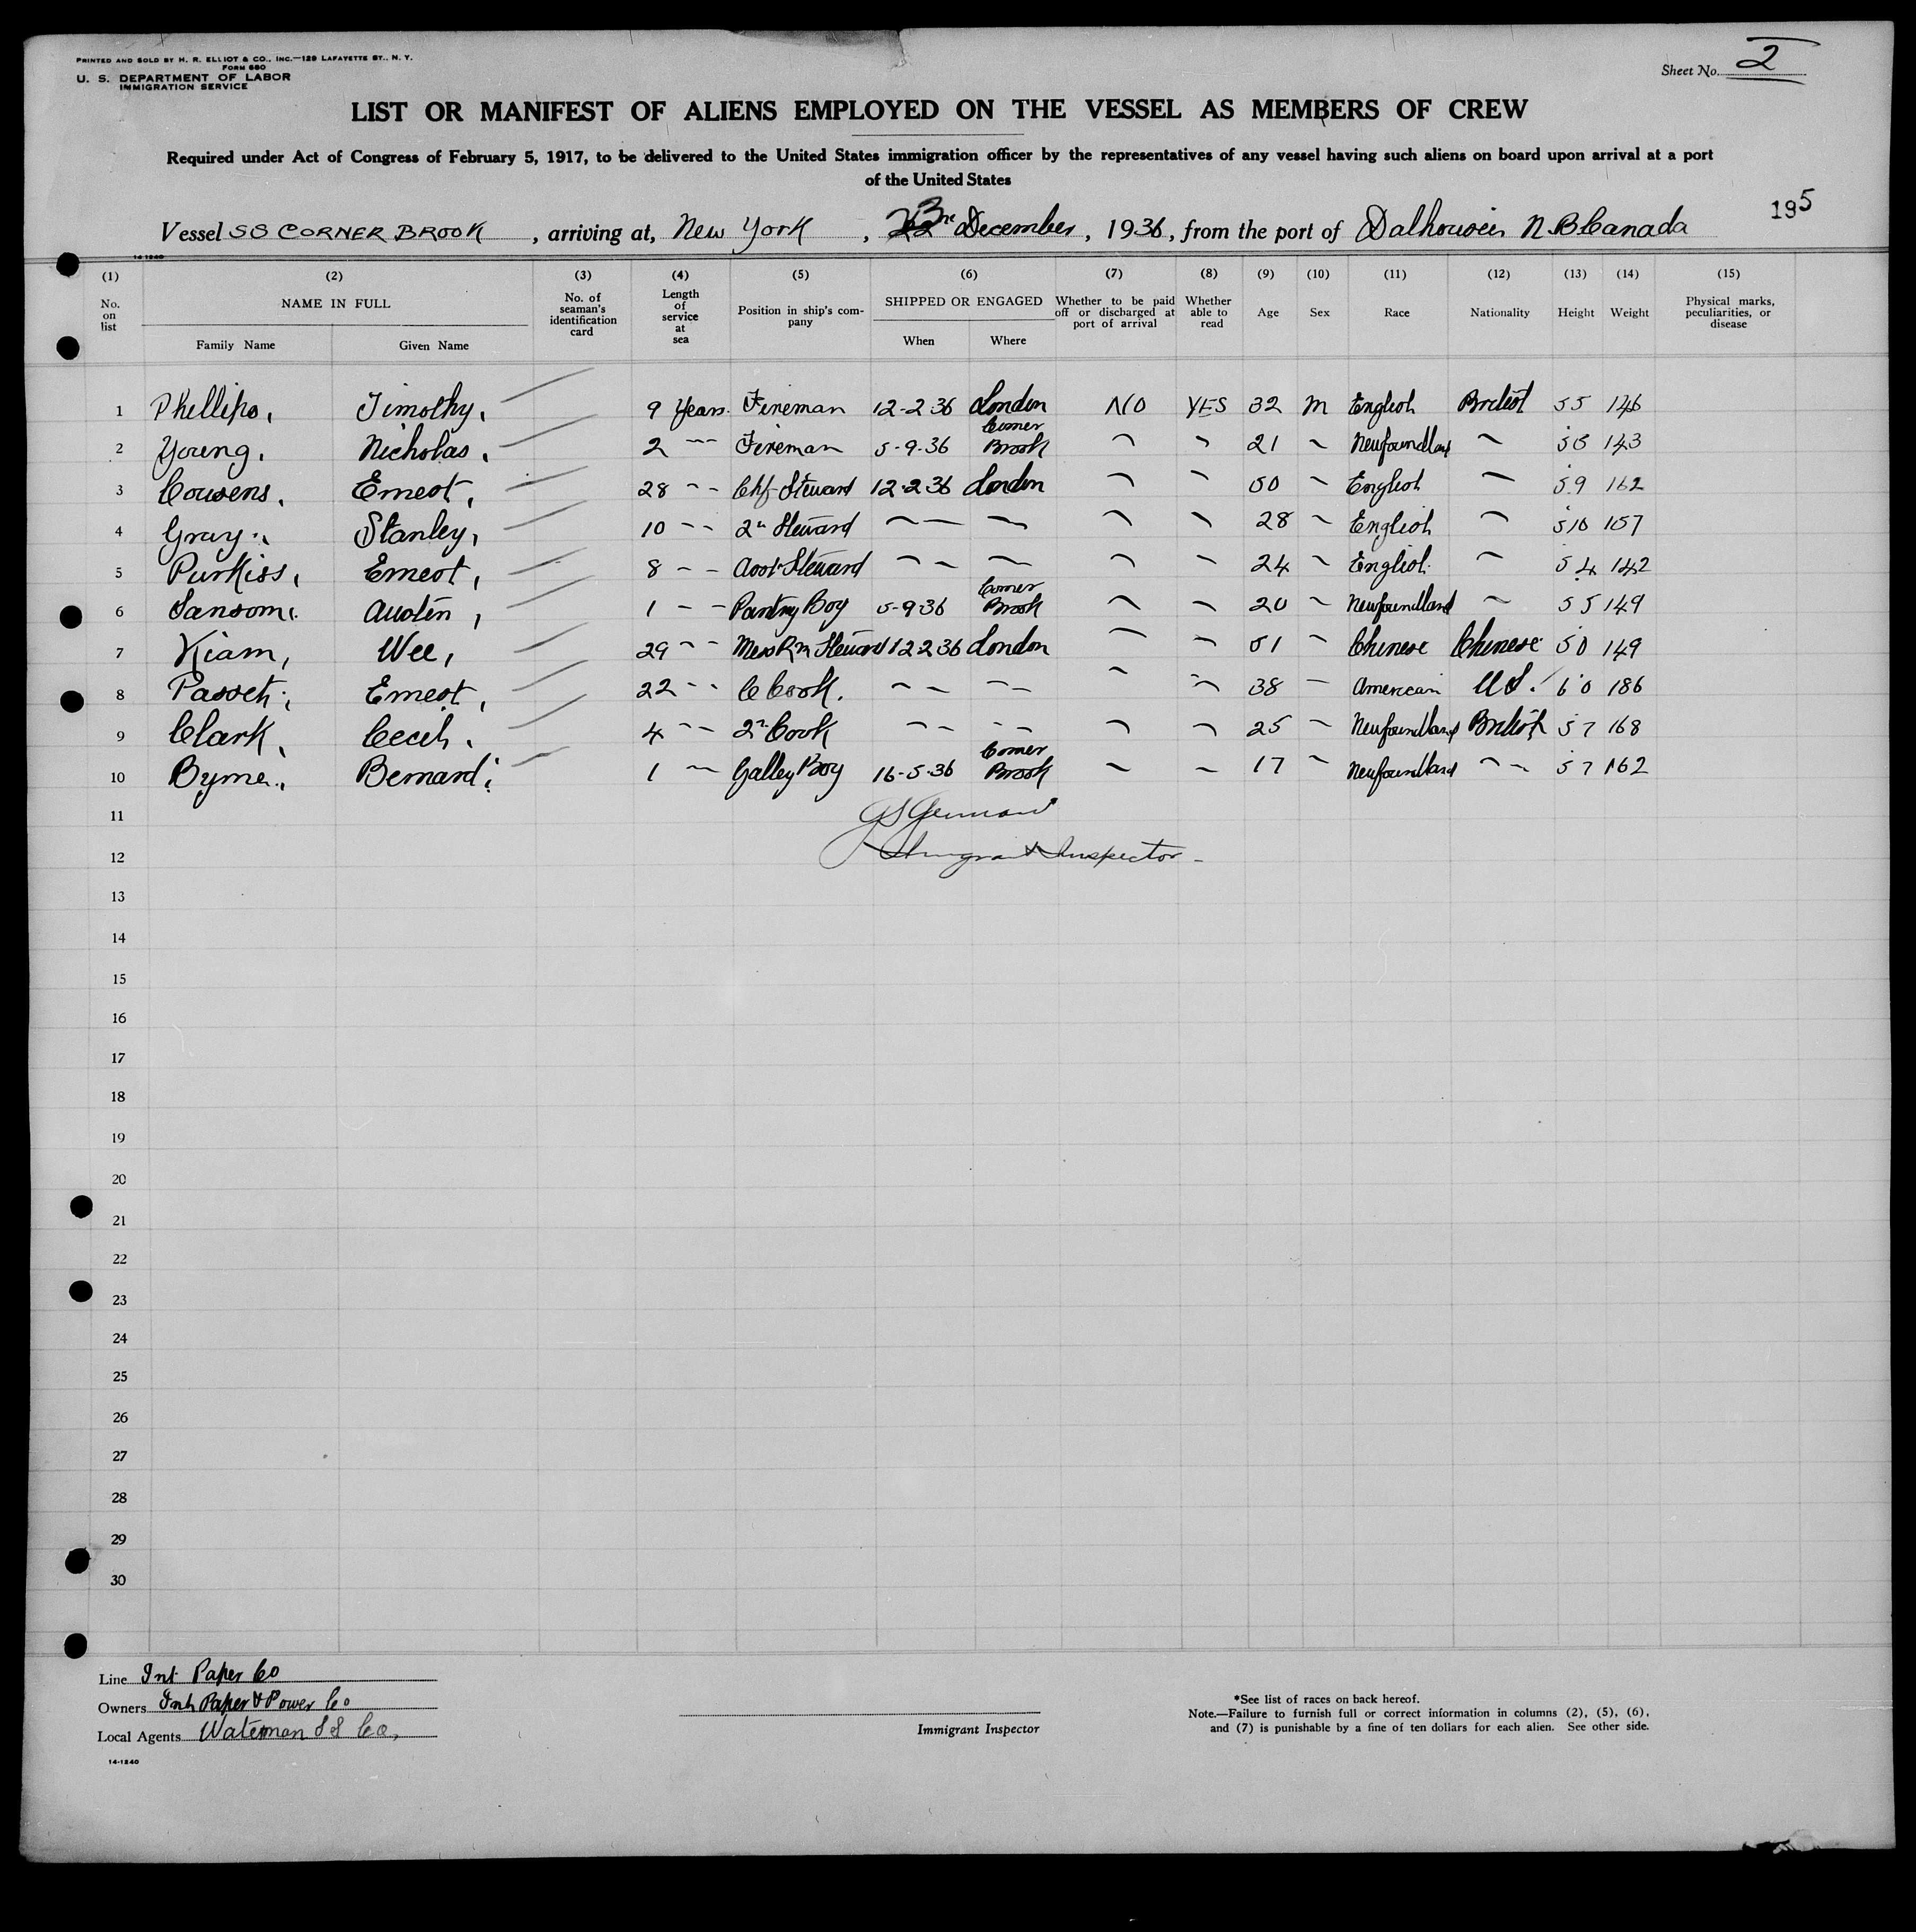 PRINTED AND SOLD BY H. R. ELLIOT & CO., INC.—129 LAFAYETTE ST., N. Y.
FORM 680
U. S. DEPARTMENT OF LABOR
IMMIGRATION SERVICE
Sheet No. 2
LIST OR MANIFEST OF ALIENS EMPLOYED ON THE VESSEL AS MEMBERS OF CREW
Required under Act of Congress of February 5, 1917, to be delivered to the United States immigration officer by the representatives of any vessel having such aliens on board upon arrival at a port
of the United States
195
Vessel SS CORNER BROOK, arriving at, New York, December, 1936, from the port of Dalhousie N B Canada
14-1240
(1) (2) (3) (4) (5) (6) (7) (8) (9) (10) (11) (12) (13) (14) (15)
No. on list NAME IN FULL Family Name Given Name No. of seaman's identification card Length of service at sea Position in ship's company SHIPPED OR ENGAGED When Where Whether to be paid off or discharged at port of arrival Whether able to read Age Sex Race Nationality Height Weight Physical marks, peculiarities, or disease
1 Phillips, Timothy, 9 Years Fireman 12-2-36 London NO YES 32 M English British 5 5 146
2 Young, Nicholas, 2 -- Fireman 5-9-36 Corner Brook 21 Newfoundland 143
3 Cousens, Ernest, 28 -- Chf Steward 12-2-36 London 50 English 5 9 162
4 Gray, Stanley, 10 -- 2n Steward 28 English 5 10 157
5 Purkiss, Ernest, 8 -- Asst Steward 24 English 5 4 142
6 Sansom, Austin, 1 -- Pantry Boy 5-9-36 Corner Brook 20 Newfoundland 5 5 149
7 Kiam, Wee, 29 -- Mess Rm Steward 12 2 36 London 51 Chinese Chinese 5 0 149
8 Ernest, 22 -- C Cook. 38 American U S. 6 0 186
9 Clark, Cecil. 4 -- 2n Cook 25 Newfoundland British 5 7 168
10 Byrne, Bernard 1 -- Galley Boy 16-5-36 Corner Brook 17 Newfoundland 5 7 162
11
12 Immigrant Inspector
13
14
15
16
17
18
19
20
21
22
23
24
25
26
27
28
29
30
Line Int Paper Co
Owners Int Paper & Power Co
Local Agents Waterman S S Co,
14-1240
Immigrant Inspector
*See list of races on back hereof.
Note.—Failure to furnish full or correct information in columns (2), (5), (6),
and (7) is punishable by a fine of ten dollars for each alien. See other side.